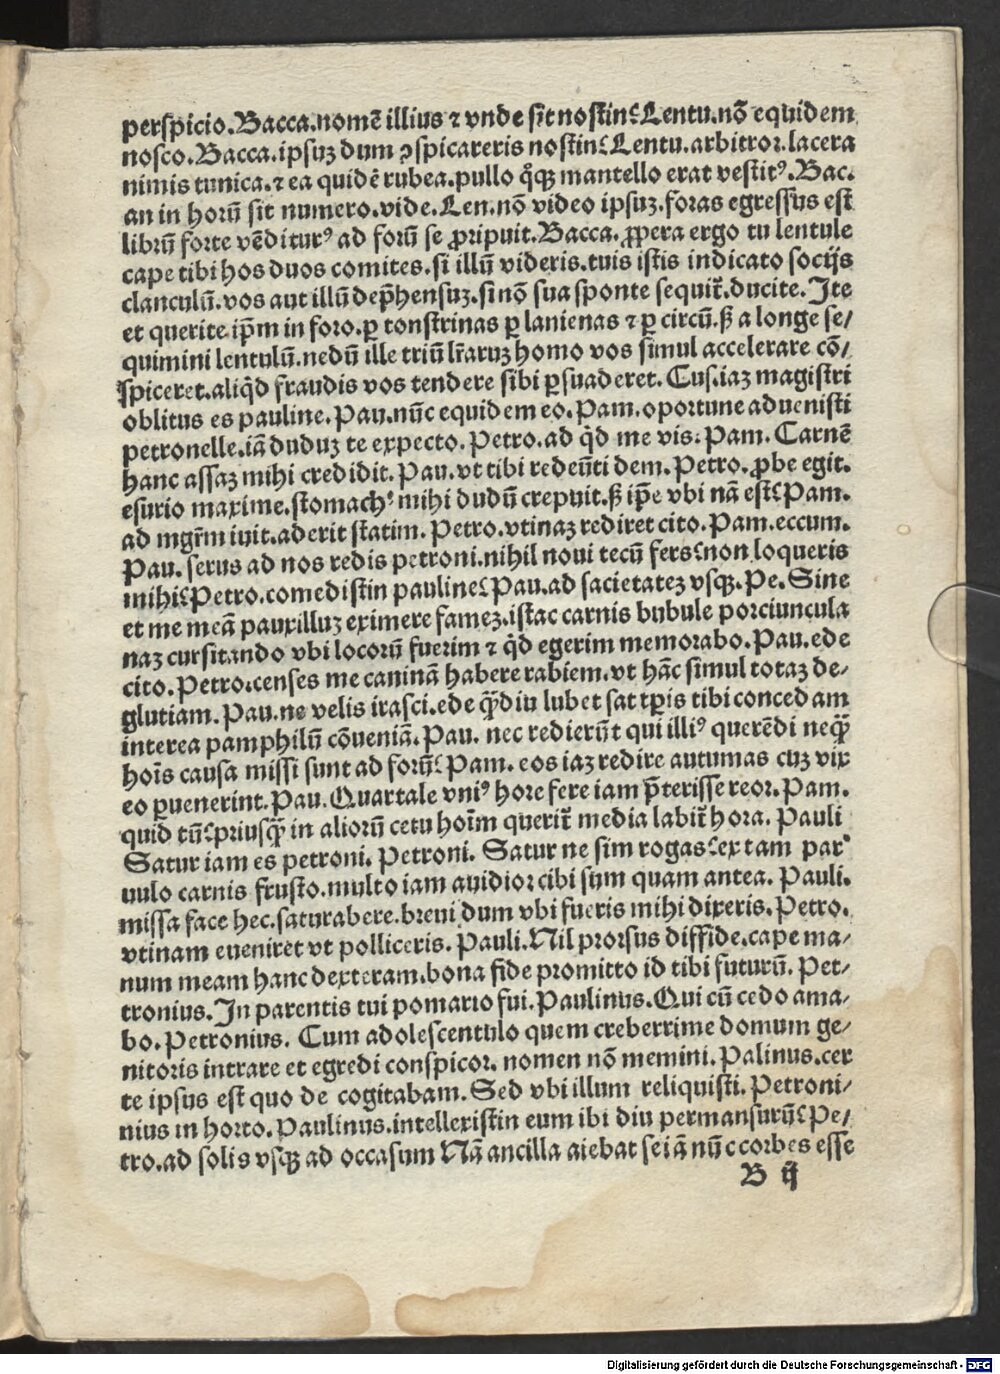 perspicio.Bacca.nomē illius ⁊ vnde sit nostin?Lentu.nō equidem
nosco.Bacca.ipsuꝫ dum ꝯspicareris nostin?Lentu.arbitror.lacera
nimis tunica.⁊ ea quidē rubea.pullo qͦqꝫ mantello erat vestitꝰ.Bac.
an in horū sit numero.vide.Len.nō video ipsuꝫ.foras egressus est
librū forte vēditurꝰ ad forū se ꝓripuit.Bacca.ꝓpera ergo tu lentule
cape tibi hos duos comites.si illū videris.tuis istis indicato socijs
clanculū.vos aut illū dep̄hensuꝫ.si nō sua sponte sequit᷑.ducite.Ite
et querite ip̄m in foro.ꝑ tonstrinas ꝑ lanienas ⁊ ꝑ circū.sꝫ a longe se/
quimini lentulū.nedū ille triū lr̄aruꝫ homo vos simul accelerare cō/
spiceret.aliqͥd fraudis vos tendere sibi ꝑsuaderet. Cus.iaꝫ magistri
oblitus es pauline.Pau.nūc equidem eo.Pam.oportune aduenisti
petronelle.iā duduꝫ te expecto.Petro.ad qͥd me vis.Pam. Carnē
hanc assaꝫ mihi credidit.Pau.vt tibi redeūti dem.Petro.ꝓbe egit.
esurio maxime.stomachꝰ mihi dudū crepuit.sꝫ ip̄e vbi nā est?Pam.
ad mgr̄m iuit.aderit statim.Petro.vtinaꝫ rediret cito.Pam.eccum.
Pau. serus ad nos redis petroni.nihil noui tecū fers?non loqueris
mihi?Petro.comedistin pauline?Pau.ad sacietateꝫ vsqꝫ.Pe.Sine
et me meā pauxilluꝫ eximere fameꝫ.istac carnis bubule porciuncula
naꝫ cursitando vbi locorū fuerim ⁊ qͥd egerim memorabo.Pau.ede
cito.Petro.censes me caninā habere rabiem.vt hāc simul totaꝫ de-
glutiam.Pau.ne velis irasci.ede qͣ̄diu lubet sat tp̄is tibi concedam
interea pamphilū cōueniā.Pau. nec redierūt qui illiꝰ querēdi neqͣ̄
hoīs causa missi sunt ad forū?Pam.eos iaꝫ redire autumas cuꝫ vix
eo ꝑuenerint.Pau.Quartale vniꝰ hore fere iam p̄terisse reor.Pam.
quid tū?priusqͣ̄ in aliorū cetu hoīm querit᷑ media labit᷑ hora. Pauli
Satur iam es petroni. Petroni. Satur ne sim rogas?ex tam par-
uulo carnis frusto.multo iam auidior cibi sum quam antea. Pauli.
missa face hec.saturabere.breui dum vbi fueris mihi dixeris.Petro.
vtinam eueniret vt polliceris. Pauli.Nil prorsus diffide.cape ma/
num meam hanc dexteram.bona fide promitto id tibi futurū. Pet/
tronius.In parentis tui pomario fui.Paulinus.Qui cū cedo ama/
bo.Petronius. Cum adolescentulo quem creberrime domum ge/
nitoris intrare et egredi conspicor.nomen nō memini.Palinus.cer
te ipsus est quo de cogitabam.Sed vbi illum reliquisti.Petroni/
nius in horto.Paulinus.intellexistin eum ibi diu permansurū?Pe/
tro.ad solis vsqꝫ ad occasum Nā ancilla aiebat se iā nūc corbes esse
B ij
Digitalisierung gefördert durch die Deutsche Forschungsgemeinschaft - DFG